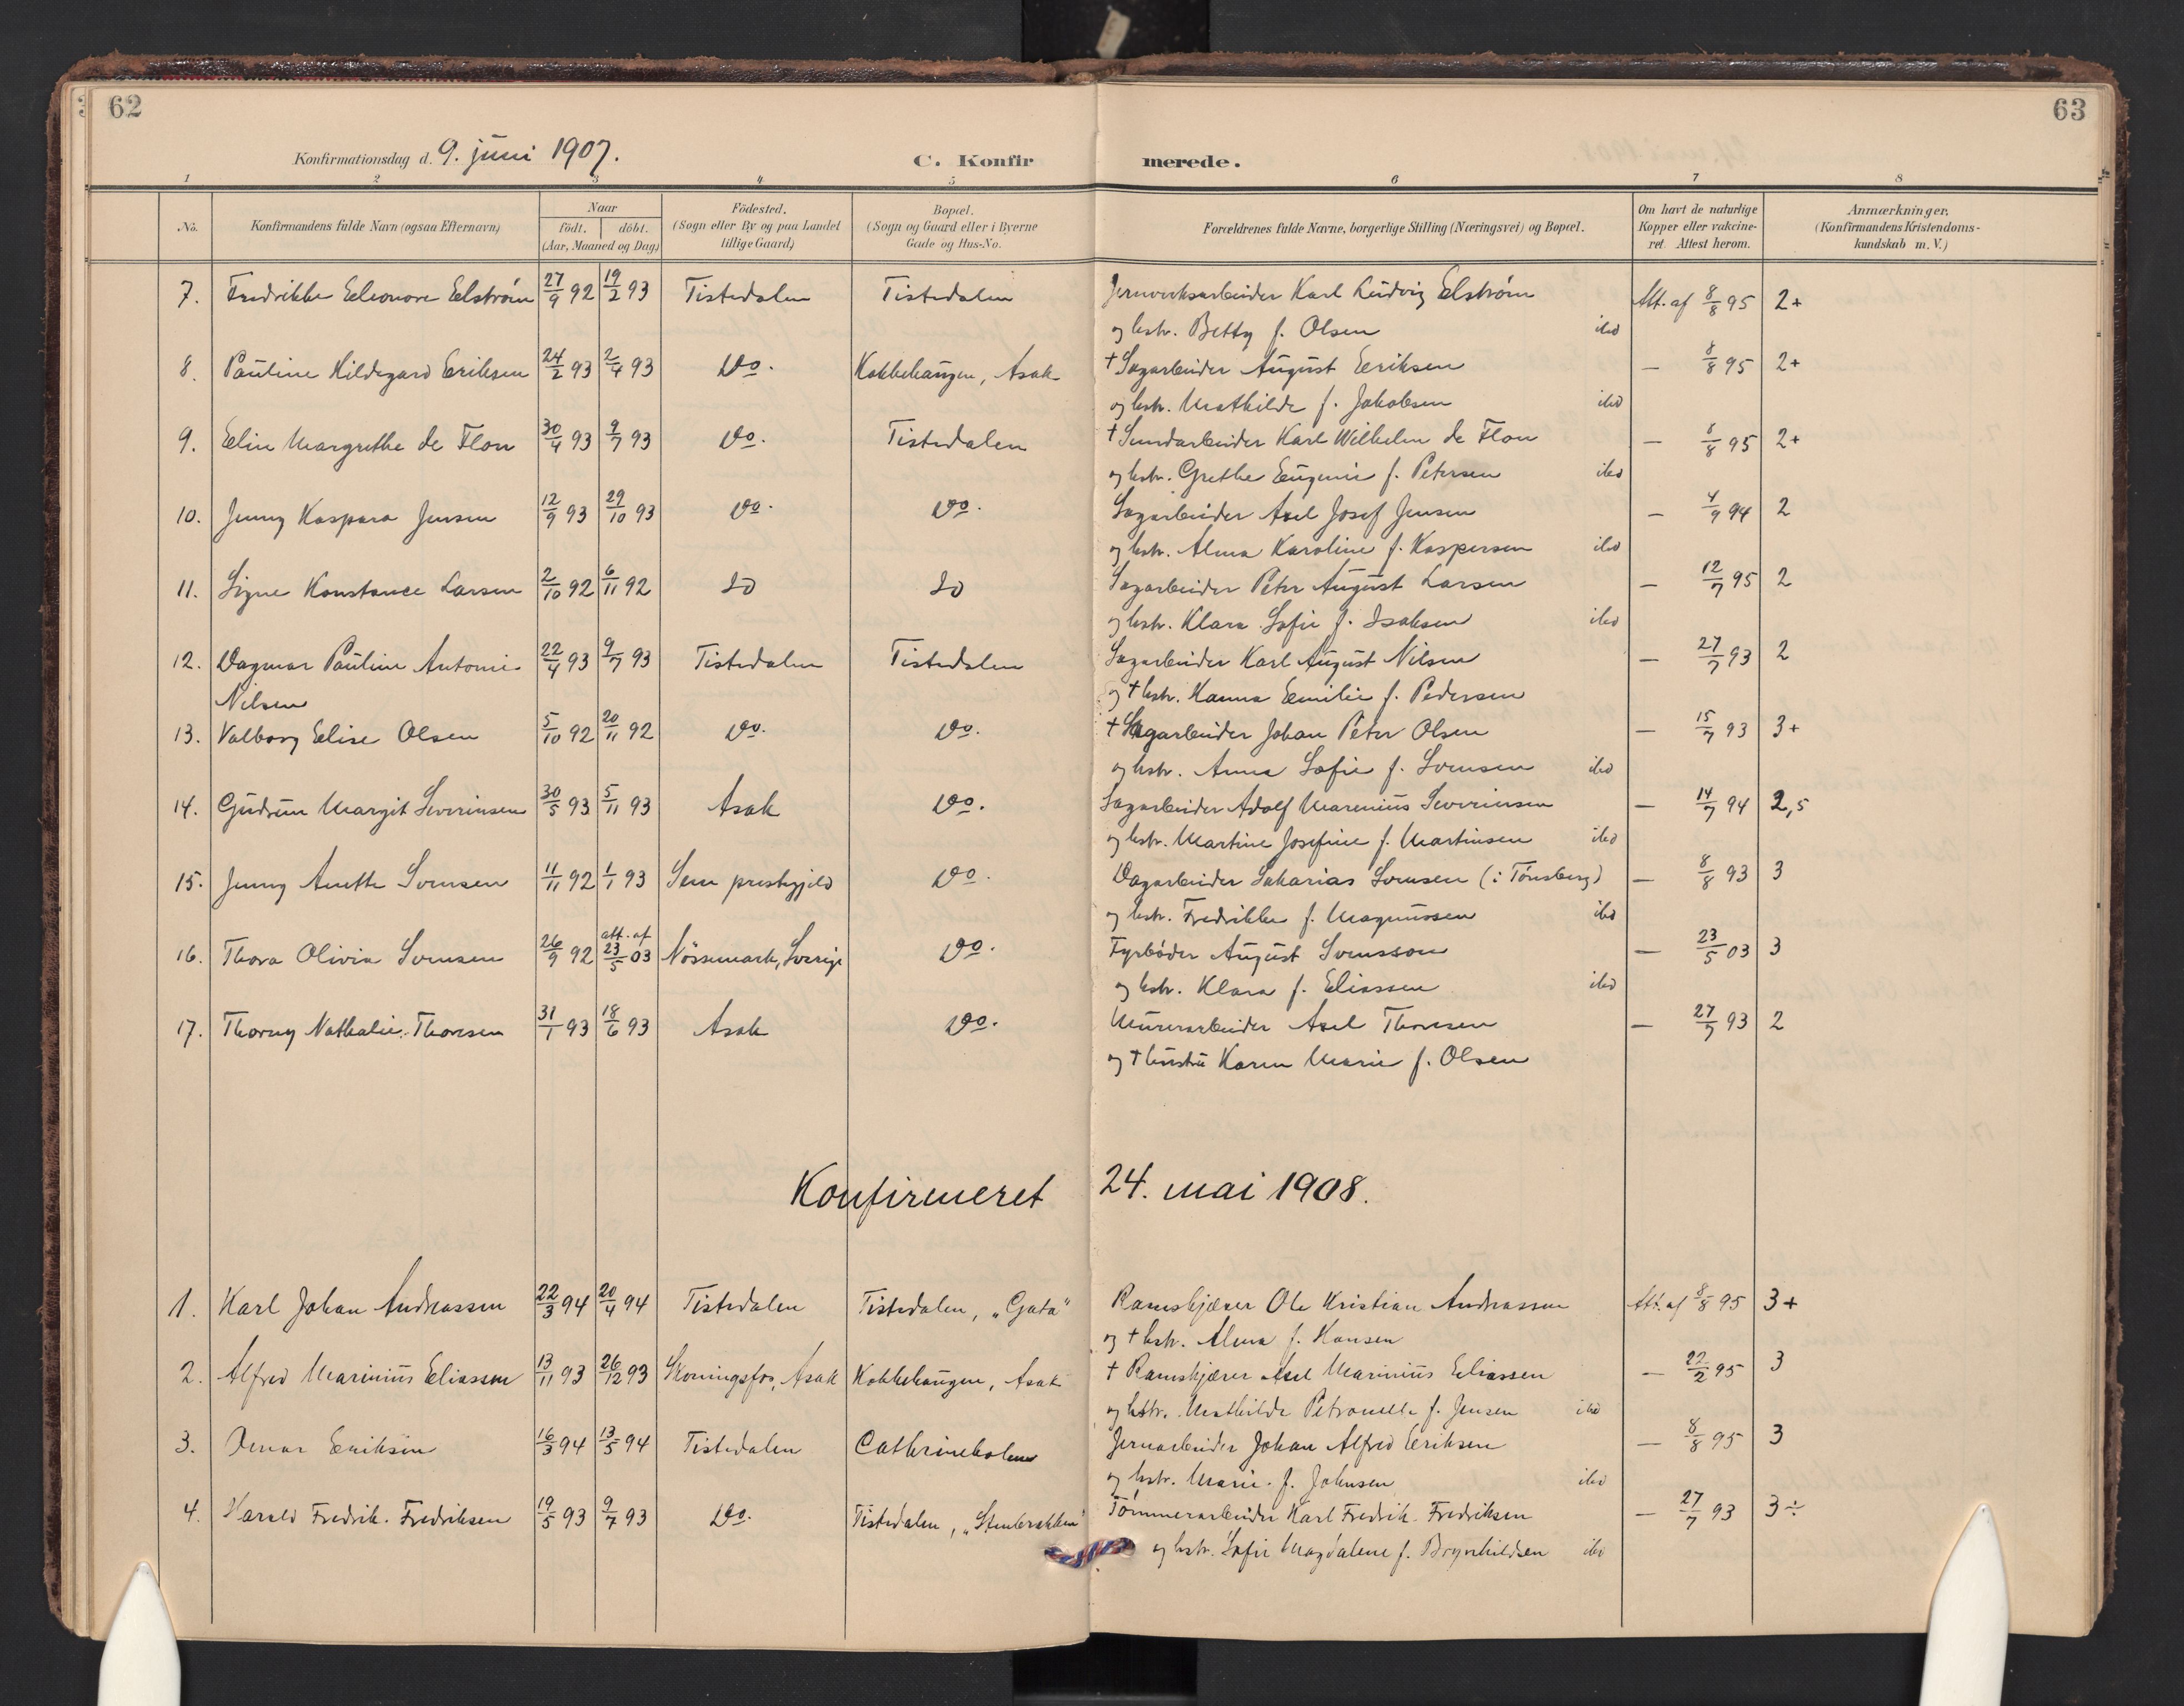 62
63
Konfirmationsdag d. 9. juni 1907.
C. Konfirmerede.
1 2 3 4 5 6 7 8
No. Konfirmandens fulde Navn (ogsaa Efternavn) Naar födt. döbt. (Aar, Maaned og Dag) Födested. (Sogn eller By og paa Landet tillige Gaard) Bopæl. (Sogn og Gaard eller i Byerne Gade og Hus-No. Forældrenes fulde Navne, borgerlige Stilling (Næringsvei) og Bopæl. Om havt de naturlige Kopper eller vakcineret. Attest herom. Anmærkninger, (Konfirmandens Kristendomskundskab m. V.)
7. Fredrikke Eleonore Elström 27/9 92 19/2 93 Tistedalen Tistedalen Jernverksarbeider Karl Ludvig Elström Att. af 8/8 95 2+
og hstr. Betty f. Olsen ibd
8. Pauline Hildegard Eriksen 24/2 93 2/4 93 Do. Kokkehaugen, Asak † Sagarbeider August Eriksen — 8/8 95 2+
og hstr. Mathilde f. Jakobsen ibd
9. Elin Margrethe de Flon 30/4 93 9/7 93 Do. Tistedalen † Sundarbeider Karl Wilhelm de Flon — 8/8 95 2+
og hstr. Grethe Eugenie f. Petersen ibd
10. Jenny Kaspara Jensen 12/9 93 29/10 93 Do. Do. Sagarbeider Axel Josef Jensen — 4/9 94 2
og hstr. Alma Karoline f. Kaspersen ibd
11. Signe Konstance Larsen 2/10 92 6/11 92 Do Do Sagarbeider Peter August Larsen — 12/7 95 2
og hstr. Klara Sofie f. Isaksen ibd
12. Dagmar Pauline Antonie 22/4 93 9/7 93 Tistedalen Tistedalen Sagarbeider Karl August Nilsen — 27/7 93 2
Nilsen og † hstr. Hanna Emilie f. Pedersen
13. Valborg Elise Olsen 5/10 92 20/11 92 Do. Do. † Sagarbeider Johan Peter Olsen — 15/7 93 3+
og hstr. Anna Sofie f. Svensen ibd
14. Gudrun Margit Severinsen 30/5 93 5/11 93 Asak Do. Sagarbeider Adolf Marenius Severinsen — 14/7 94 2,5
og hstr. Martine Josefine f. Martinsen ibd
15. Jenny Anette Svensen 11/11 92 1/1 93 Sem prestegjeld Do. Dagarbeider Sakarias Svensen (i Tönsberg) — 8/8 93 3
og hstr. Fredrikke f. Magnussen ibd
16. Thora Olivia Svensen 26/9 92 att. af 23/5 03 Nössemark, Sverige Do. Fyrböder August Svensson — 23/5 03 3
og hstr. Klara f. Eliassen ibd
17. Thorny Nathalie Thoresen 31/1 93 18/6 93 Asak Do. Murerarbeider Axel Thoresen — 27/7 93 2
og † hustru Karen Marie f. Olsen
Konfirmeret 24. mai 1908.
1. Karl Johan Andreassen 22/3 94 20/4 94 Tistedalen Tistedalen, „Gata" Ramskjærer Ole Kristian Andreassen Att. af 8/8 95 3+
og † hstr. Alma f. Hansen
2. Alfred Marinius Eliassen 13/11 93 26/12 93 Skoningsfos, Asak Kokkehaugen, Asak † Ramskjærer Axel Marinius Eliassen — 22/2 95 3
og hstr. Mathilde Petronelle f. Jensen ibd
3. Omar Eriksen 16/3 94 13/5 94 Tistedalen Cathrineholm Jernarbeider Johan Alfred Eriksen — 8/8 95 3
og hstr. Marie f. Johnsen ibd
4. Harald Fredrik Fredriksen 19/5 93 9/7 93 Do. Tistedalen, „Stenbrækken" Tömmerarbeider Karl Fredrik Fredriksen — 27/7 93 3÷
og hstr. Sofie Magdalene f. Brynhildsen ibd